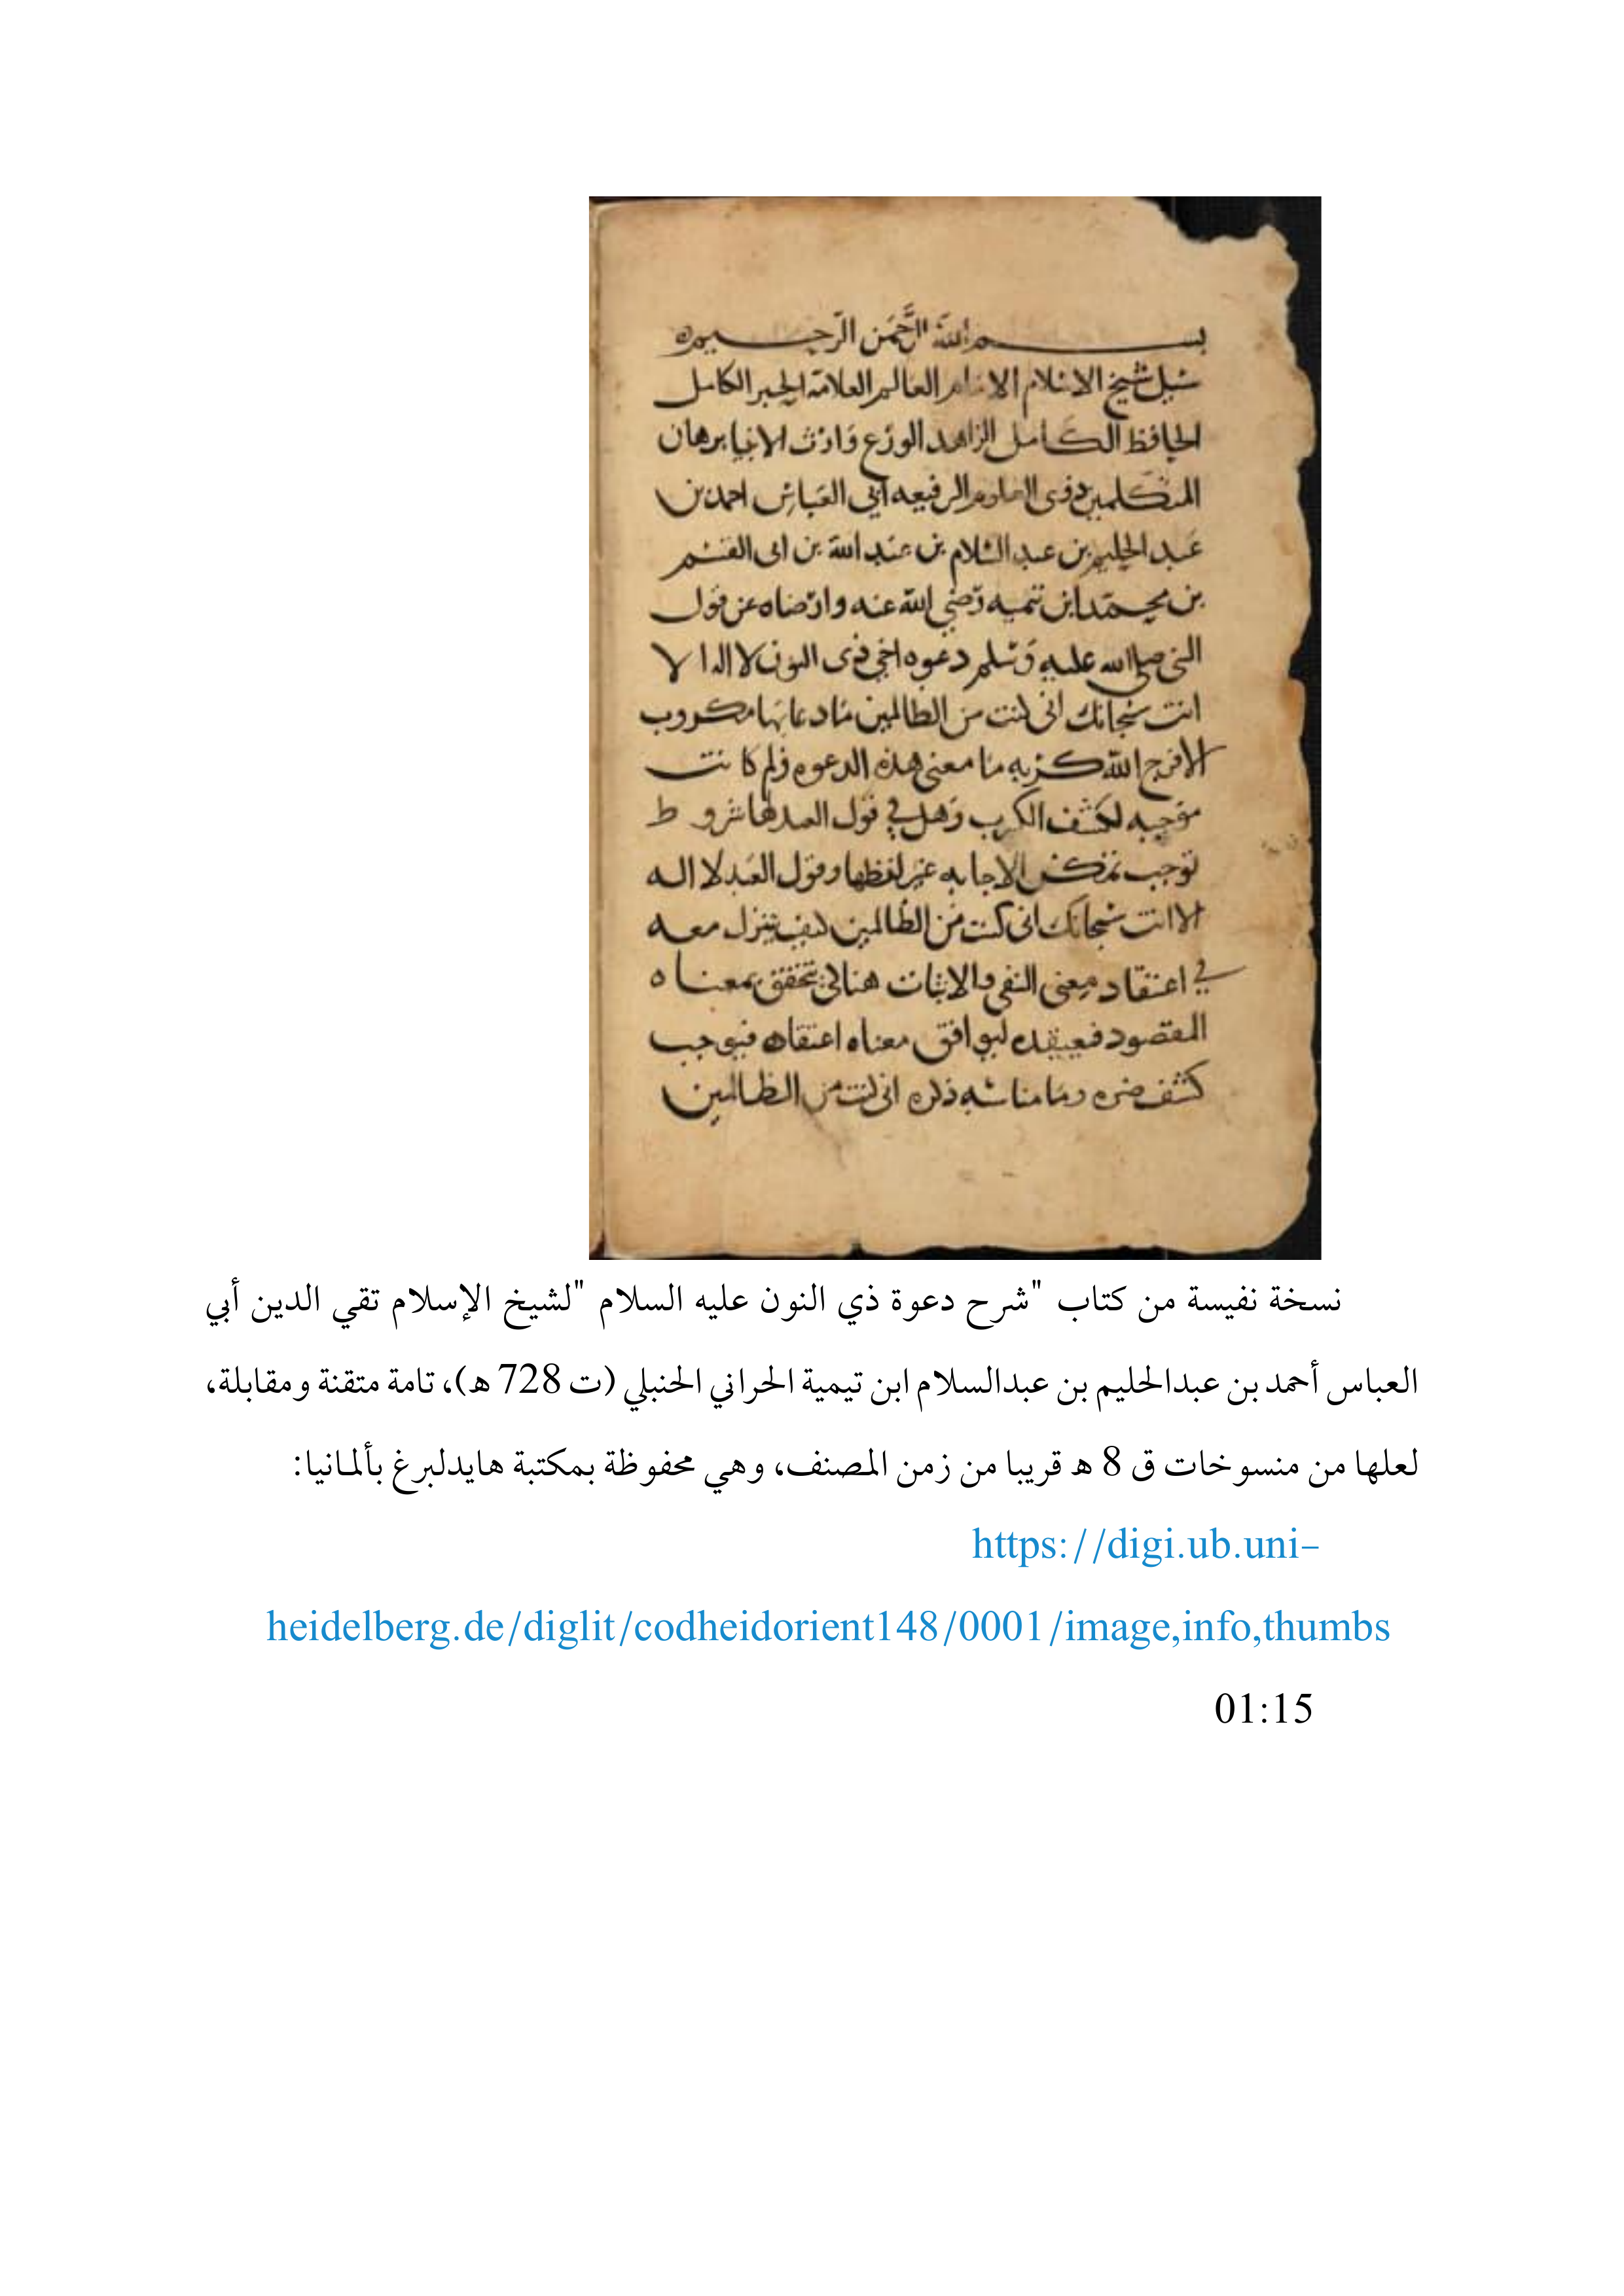 بسم الله الرحمن الرحيم
سئل شيخ الاسلام الامام العالم العلامة الحبر الكامل
الحافظ الكامل الزاهد الورع وارث الانبيا برهان
المتكلمين ذوى العلوم الرفيعه ابي العباس احمد بن
عبد الحليم بن عبد السلام بن عبد الله بن ابى القسم
بن محمد ابن تيميه رضي الله عنه وارضاه عن قول
النبي صلى الله عليه وسلم دعوه اخي ذى النون لا اله الا
انت سبحانك انى كنت من الظالمين ما دعا بها مكروب
الا فرج الله كربه ما معنى هذه الدعوه ولم كانت
موجبه لكشف الكرب وهل في قول العبد لها شروط
توجب الاجابه غير لفظها وقول العبد لا اله
الا انت سبحانك انى كنت من الظالمين كيف يتنزل معه
في اعتقاد معنى النفي والاثبات يتحقق بمعناه
المقصود ليوافق معناه اعتقاده فيوجب
كشف ضره وما مناسبه ذكره انى كنت من الظالمين
نسخة نفيسة من كتاب "شرح دعوة ذي النون عليه السلام "لشيخ الإسلام تقي الدين أبي
العباس أحمد بن عبدالحليم بن عبدالسلام ابن تيمية الحراني الحنبلي (ت 728 ه)، تامة متقنة ومقابلة،
لعلها من منسوخات ق 8 ه قريبا من زمن المصنف، وهي محفوظة بمكتبة هايدلبرغ بألمانيا:
https://digi.ub.uni-
heidelberg.de/diglit/codheidorient148/0001/image,info,thumbs
01:15